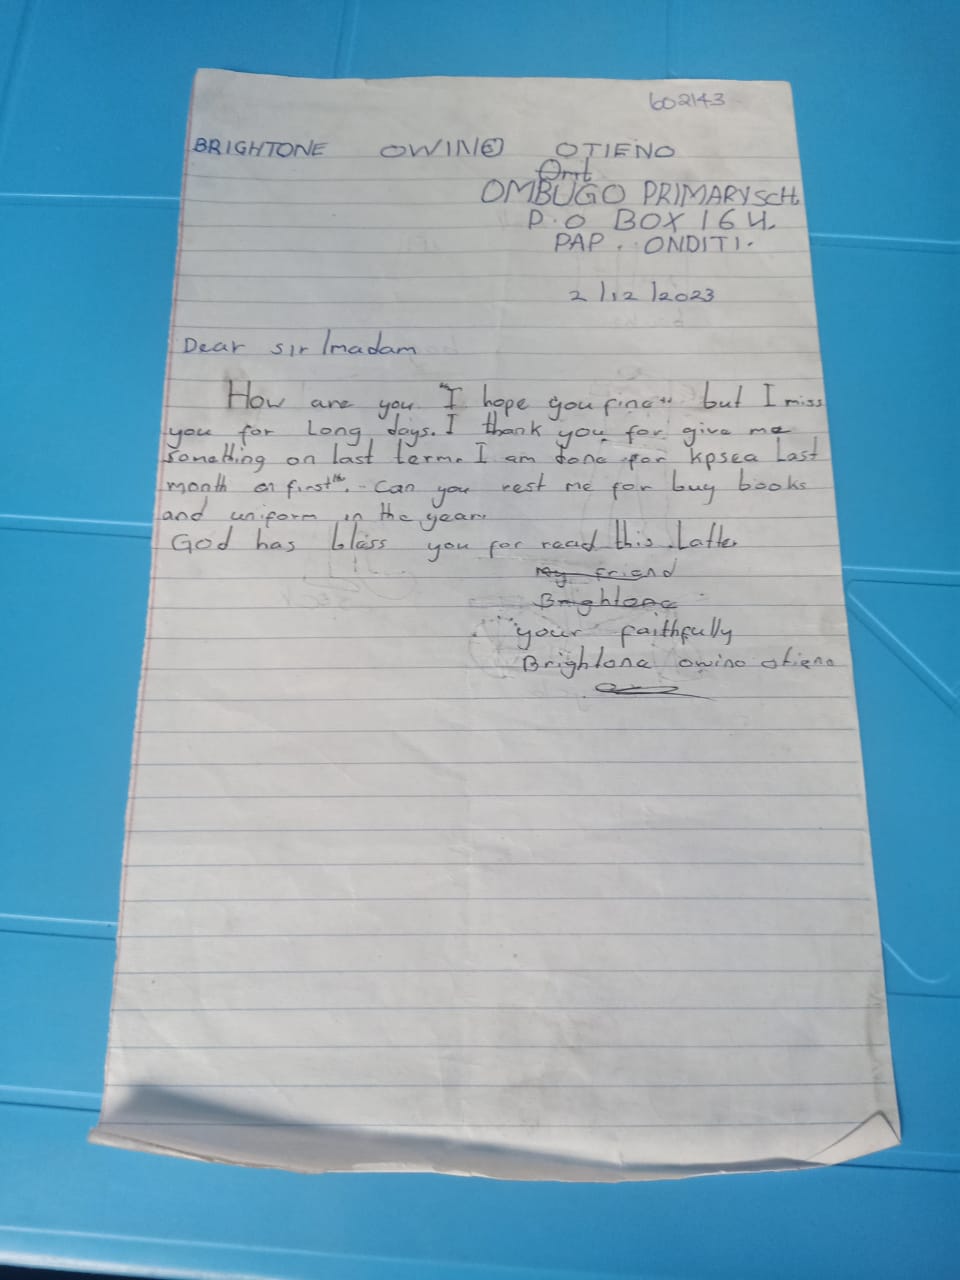 602143
BRIGHTONE OWINO OTIENO
OMBUGO PRIMARY SCH.
P.O BOX 164.
PAP. ONDITI.
2/12/2023
Dear sir/madam
How are you "I hope you fine" but I miss
you for Long days. I thank you for give me
something on last term. I am done for kpsea Last
month on first th. Can you rest me for buy books
and uniform in the year.
God has bless you for read this Latter
My friend
Brightone
your faithfully
Brightone owino otieno